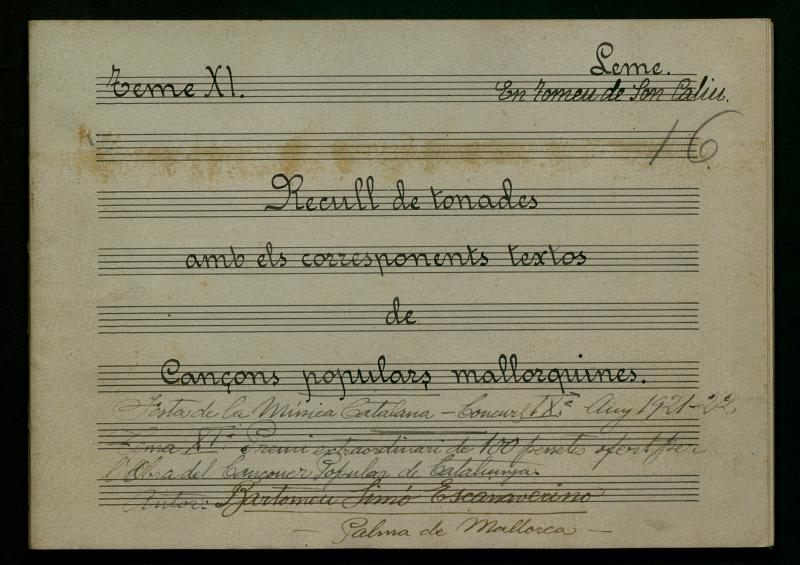 Leme.
Teme XI. En Tomeu de Son Caliu.
16
Recull de tonades
amb els corresponents textos
de
Cançons populars mallorquines.
Festa de la Música Catalana – Concurs X.è Any 1921-22
Tema XI: Premi extraordinari de 100 pessetes ofert per
l'Obra del Cançoner Popular de Catalunya.
Autor: Bartomeu Simó Escanaverino
– Palma de Mallorca –